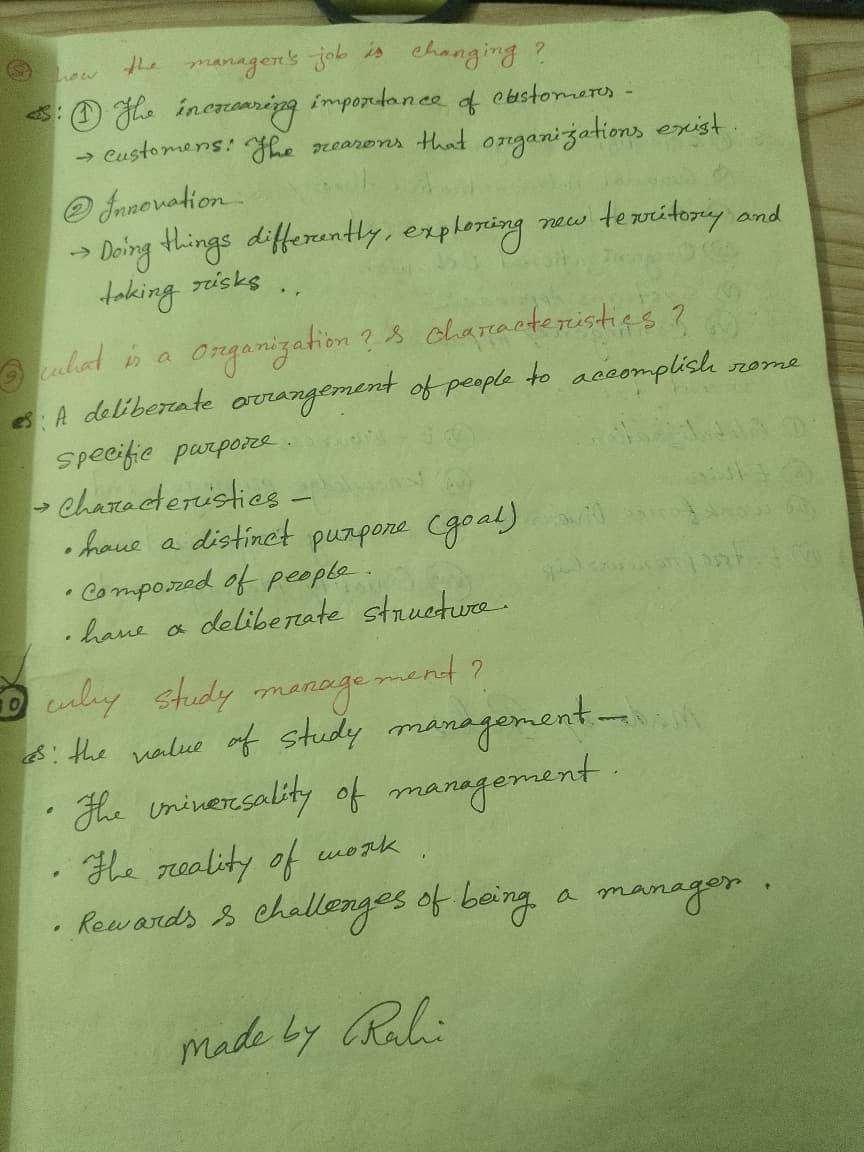 ⑧ how the manager's job is changing ?
As: ① The increasing importance of customers -
→ customers: The reasons that organizations exist.
② Innovation
→ Doing things differently, exploring new territory and
taking risks ..
⑨ what is a organization ? & characteristics ?
As: A deliberate arrangement of people to accomplish some
specific purpose.
→ characteristics —
• have a distinct purpose (goal)
• composed of people.
• have a deliberate structure.
10 why study management ?
As: the value of study management —
• The universality of management.
• The reality of work.
• Rewards & challenges of being a manager.
made by Rahi